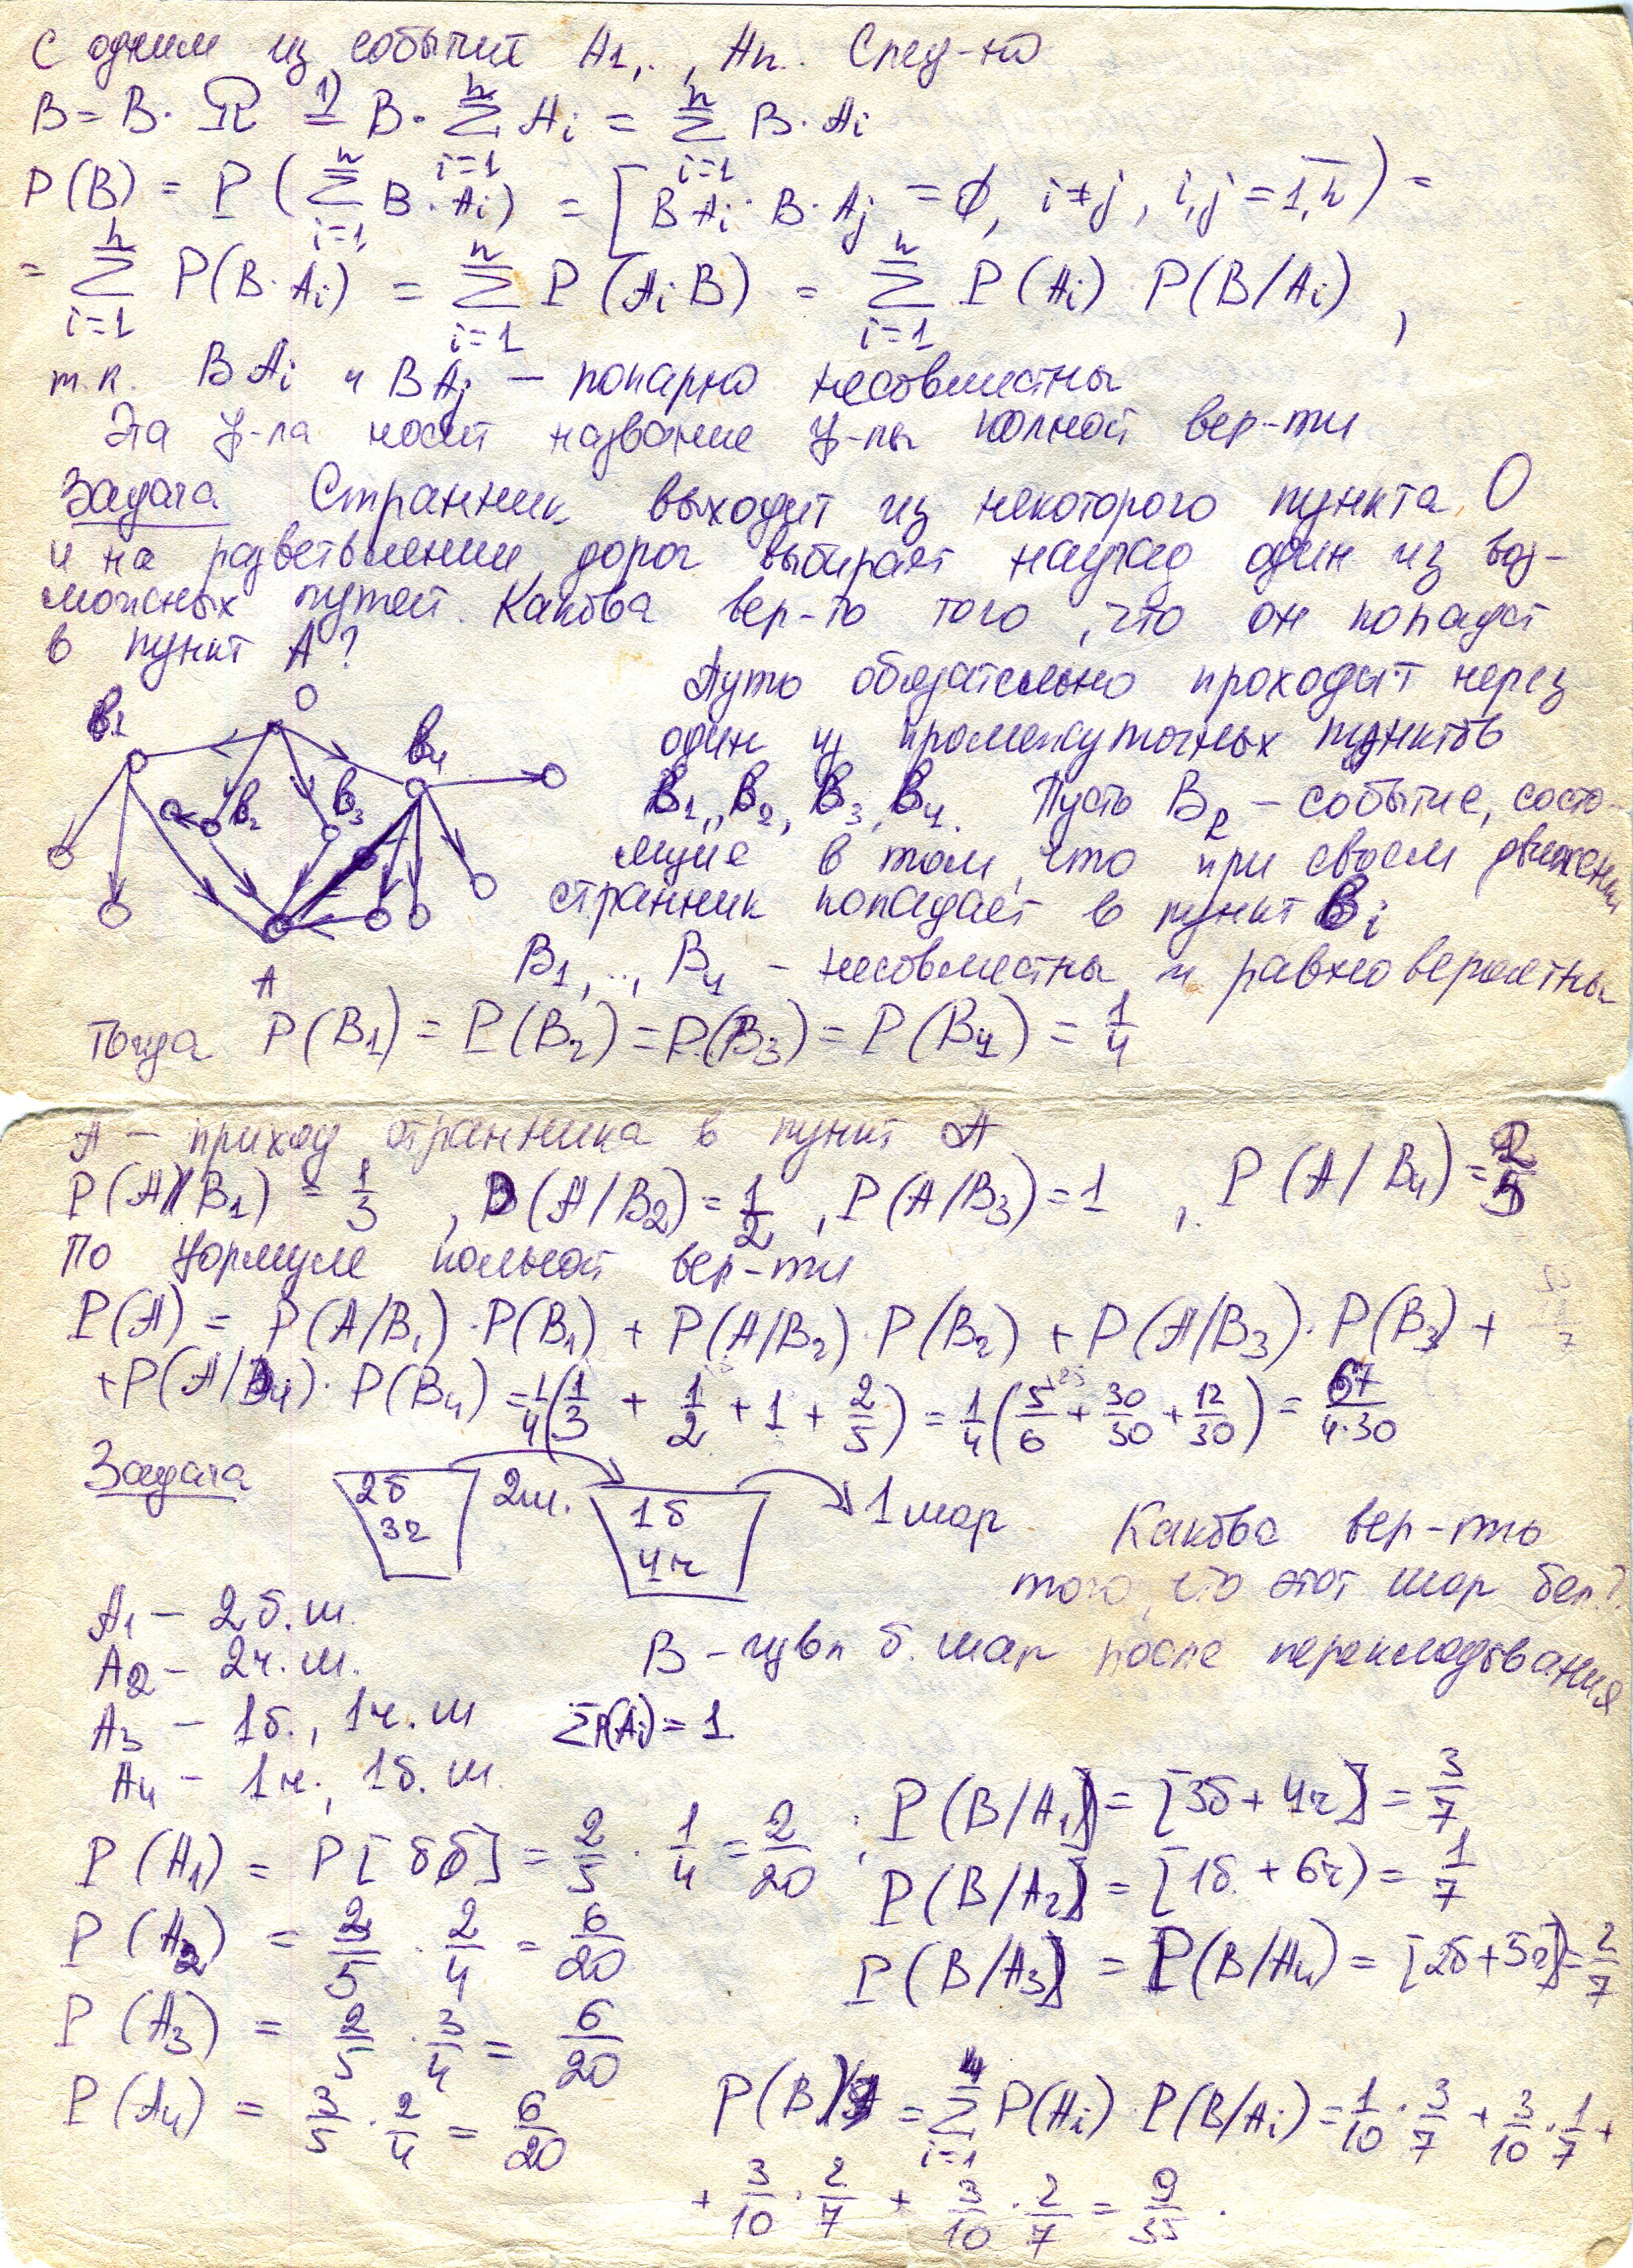 с одним из событий A1,.., An. След-но
B = B · Ω 1)= B · n∑i=1 Ai = n∑i=1 B · Ai
P(B) = P(n∑i=1 B · Ai) = [BAi · B · Aj = ∅, i≠j, i,j = 1,n) =
= n∑i=1 P(B · Ai) = n∑i=1 P(AiB) = n∑i=1 P(Ai) P(B/Ai),
т.к. BAi и BAj – попарно несовместны
Эта ф-ла носит название ф-лы полной вер-ти
Задача Странник выходит из некоторого пункта O
и на разветвлении дорог выбирает наугад один из воз-
можных путей. Какова вер-ть того, что он попадет
в пункт A?
Путь обязательно проходит через
один из промежуточных пунктов
B1, B2, B3, B4. Пусть Bi – событие, состо-
ящие в том, что при своем движении
странник попадает в пункт Bi
O
B1
B4
B2
B3
A
B1,..,B4 – несовместны и равновероятны
Тогда P(B1) = P(B2) = P(B3) = P(B4) = 1/4
A – приход странника в пункт A
P(A/B1) = 1/3, P(A/B2) = 1/2, P(A/B3) = 1, P(A/B4) = 2/5
По формуле полной вер-ти
P(A) = P(A/B1) · P(B1) + P(A/B2) · P(B2) + P(A/B3) · P(B3) +
+ P(A/B4) · P(B4) = 1/4(1/3 + 1/2 + 1 + 2/5) = 1/4(5/6 + 30/30 + 12/30) = 67/4·30
Задача
2б
3ч
2ш.
1б
4ч
1 шар
Какова вер-ть
того, что этот шар бел.?
A1 – 2 б. ш.
A2 – 2 ч. ш.
B – извл б. шар после перекладывания
A3 – 1б., 1ч. ш
∑P(Ai) = 1.
A4 – 1ч., 1б. ш.
P(A1) = P[бб] = 2/5 · 1/4 = 2/20; P(B/A1) = [3б + 4ч] = 3/7
P(A2) = 3/5 · 2/4 = 6/20 P(B/A2) = [1б. + 6ч) = 1/7
P(A3) = 2/5 · 3/4 = 6/20 P(B/A3) = P(B/A4) = [2б + 5ч] = 2/7
P(A4) = 3/5 · 2/4 = 6/20 P(B) = 4∑i=1 P(Ai) · P(B/Ai) = 1/10 · 3/7 + 3/10 · 1/7 +
+ 3/10 · 2/7 + 3/10 · 2/7 = 9/35.